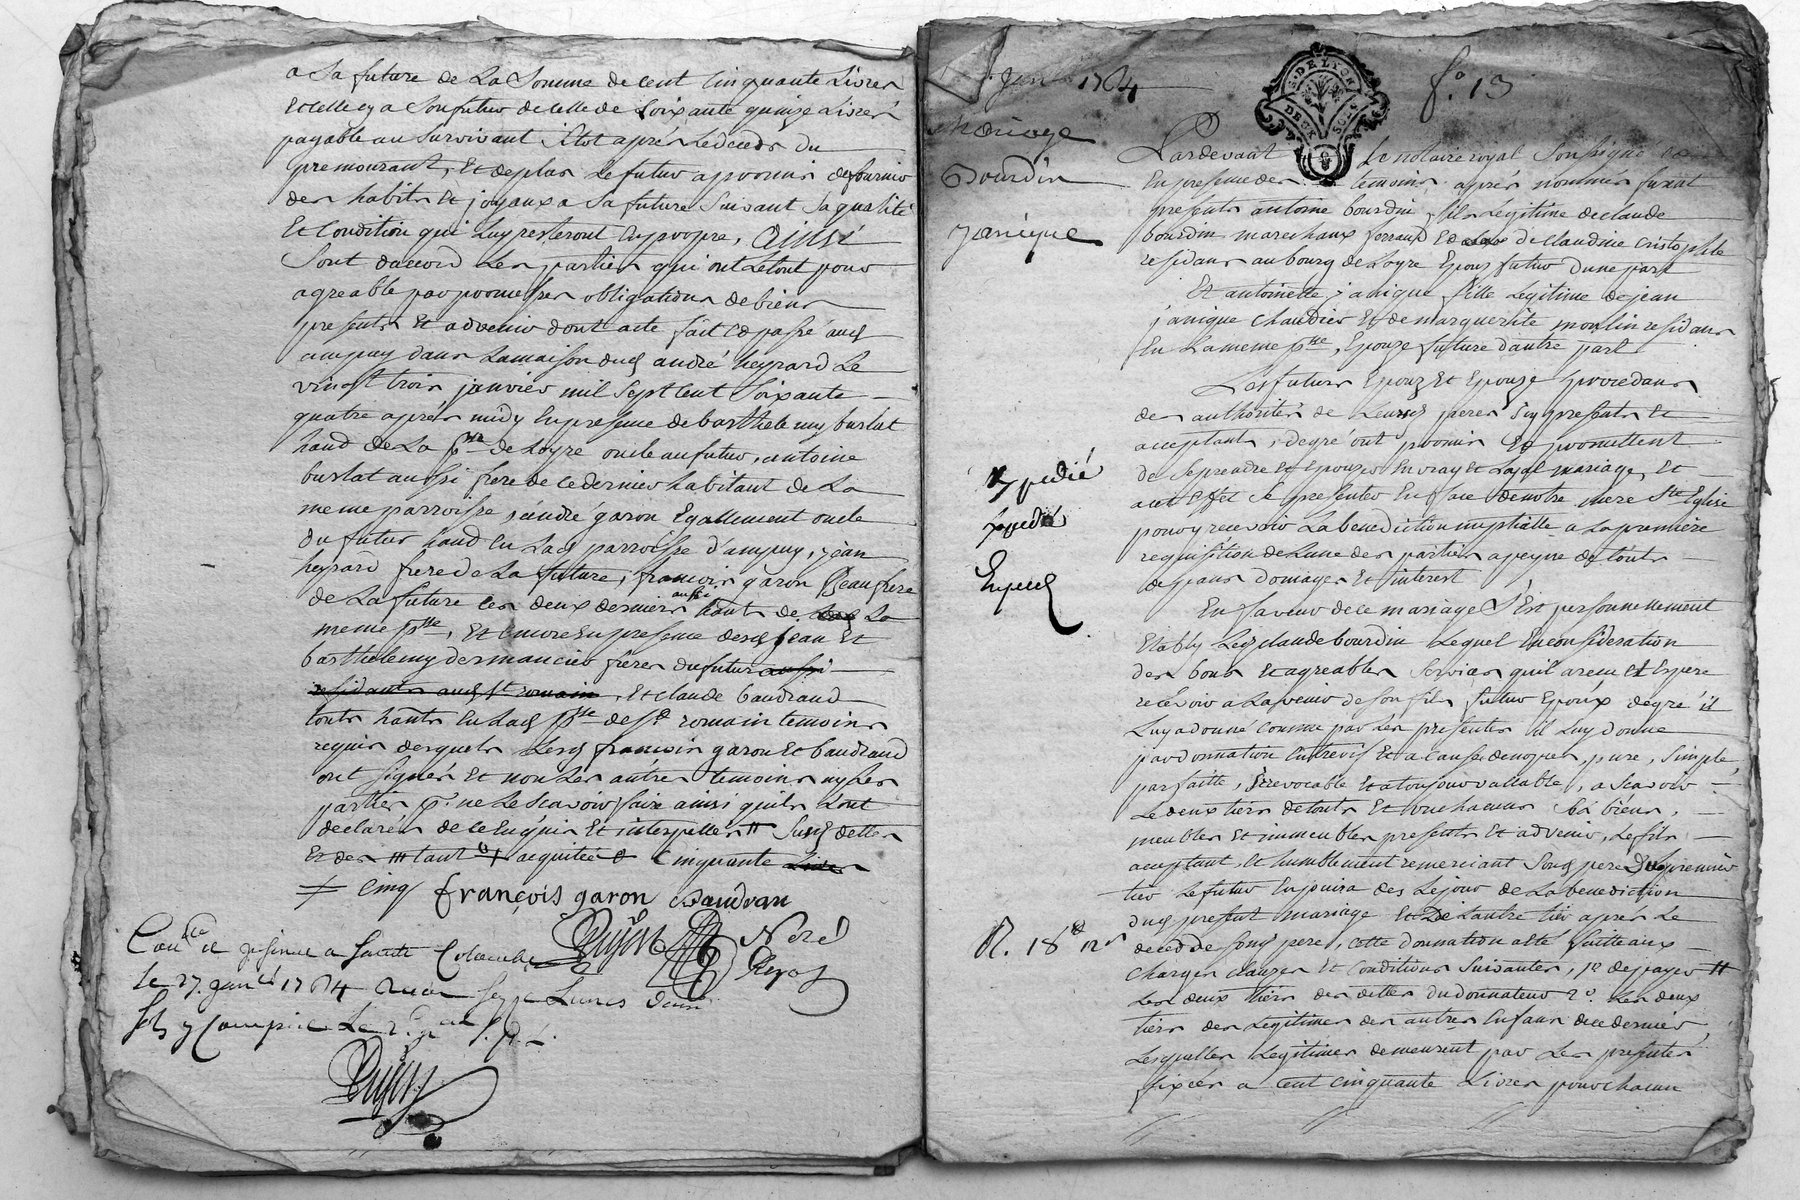 a sa future de la somme de cent cinquante livres
et celle cy a son futur de celle de soixante quinze livres
payable au survivant sitot après le deceds du
premourant, et de plus le futur a promis de fournir
des habits et joyaux a sa future suivant sa qualité
et condition qui luy resteront en propre, ainsi
sont daccord les parties qui ont le tout pour
agreable par promesses obligations de biens
presents et advenir dont acte fait et passé audt
ampuy dans la maison dudt andré heyrard le
vingt trois janvier mil sept cent soixante
quatre après midy en presence de barthelemy burlat
habt de la psse de loyre oncle au futur, antoine
burlat aussi frere de ce dernier habitant de la
meme parroisse, andré garon egallement oncle
du futur habt en lad parroisse d'ampuy, jean
heyrard frere de la future, francois garon beaufrere
de la future ces deux derniers aussi habts de la
meme psse, et encore en presence desd jean et
barthelemy dermancier freres du futur aussi
residants aud st romain, et claude baudrand
touts habts en lad psse de st romain temoins
requis desquels lesd francois garon et baudrand
ont signés et non les autres temoins ny les
parties pr ne le scavoir faire ainsi quils l'ont
declarés de ce enquis et interpellés susd dettes
et des tant acquitée cinquante livres
cinq françois garon baudran
Con.lé et jnsinué a Sainte Colombe
le 27. janer 1764 Reçu seize livres
sols y compris le
1764
fo. 13
DE LYON
DEUX SOLS
Mariage
Bourdin
janique
Pardevant le notaire royal soussigné
en presence des temoins après nommés furent
presents antoine bourdin fils legitime de claude
bourdin marechaux ferrand et de claudine cristophle
residans au bourg de loyre epoux futur d'une part
Et antoinette janique fille legitime de jean
janique chaudier et de marguerite moulin residans
en la meme psse, epouze future d'autre part
Lesd futurs epoux et epouze procedans
des authorités de leursd peres icy presents et
acceptants, de gré ont promis et promettent
de se prendre et epouzer en vray et loyal mariage, et
a cet effet se presenter en face de notre mere Ste Eglise
pour y recevoir la benediction nuptialle a la premiere
requisition de l'une des parties a peyne de touts
depans domages et interest
En faveur de ce mariage s'est personnellement
etably led claude bourdin lequel en consideration
des bons et agreables services qu'il a recu et espere
recevoir a l'avenir de son fils futur epoux de gré il
luy a donné comme par les presentes il luy donne
par donnation entrevif et a cause de noces, pure, simple,
parfaitte, irrevocable et a toujours vallable, a scavoir
le deux tiers de touts et un chacuns sès biens,
meubles et immeubles presents et advenir, le fils
acceptant, et humblement remerciant sond pere du premier
tier le futur en jouira des le jour de la benediction
dud present mariage et de l'autre tier après le
deced de sond pere, cette donnation ette faitte aux
charges clauzes et conditions suivantes, 1o de payer
les deux tiers des dettes du donnateur 2o. les deux
tiers des legitimes des autres enfans de ce dernier,
lesquelles legitimes demeurent par les presentes
fixées a cent cinquante livres pour chacun
Expedié
expedié